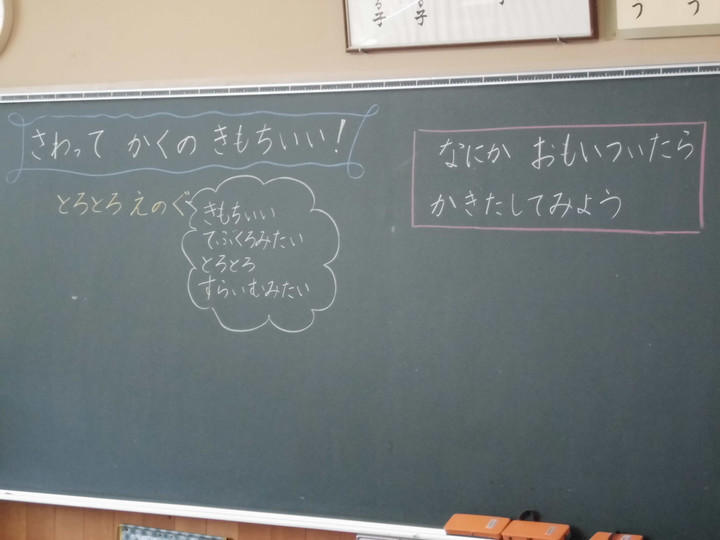 さわって かくの きもちいい!
とろとろ えのぐ
きもちいい
てぶくろみたい
とろとろ
すらいむみたい
なにか おもいついたら
かきたしてみよう